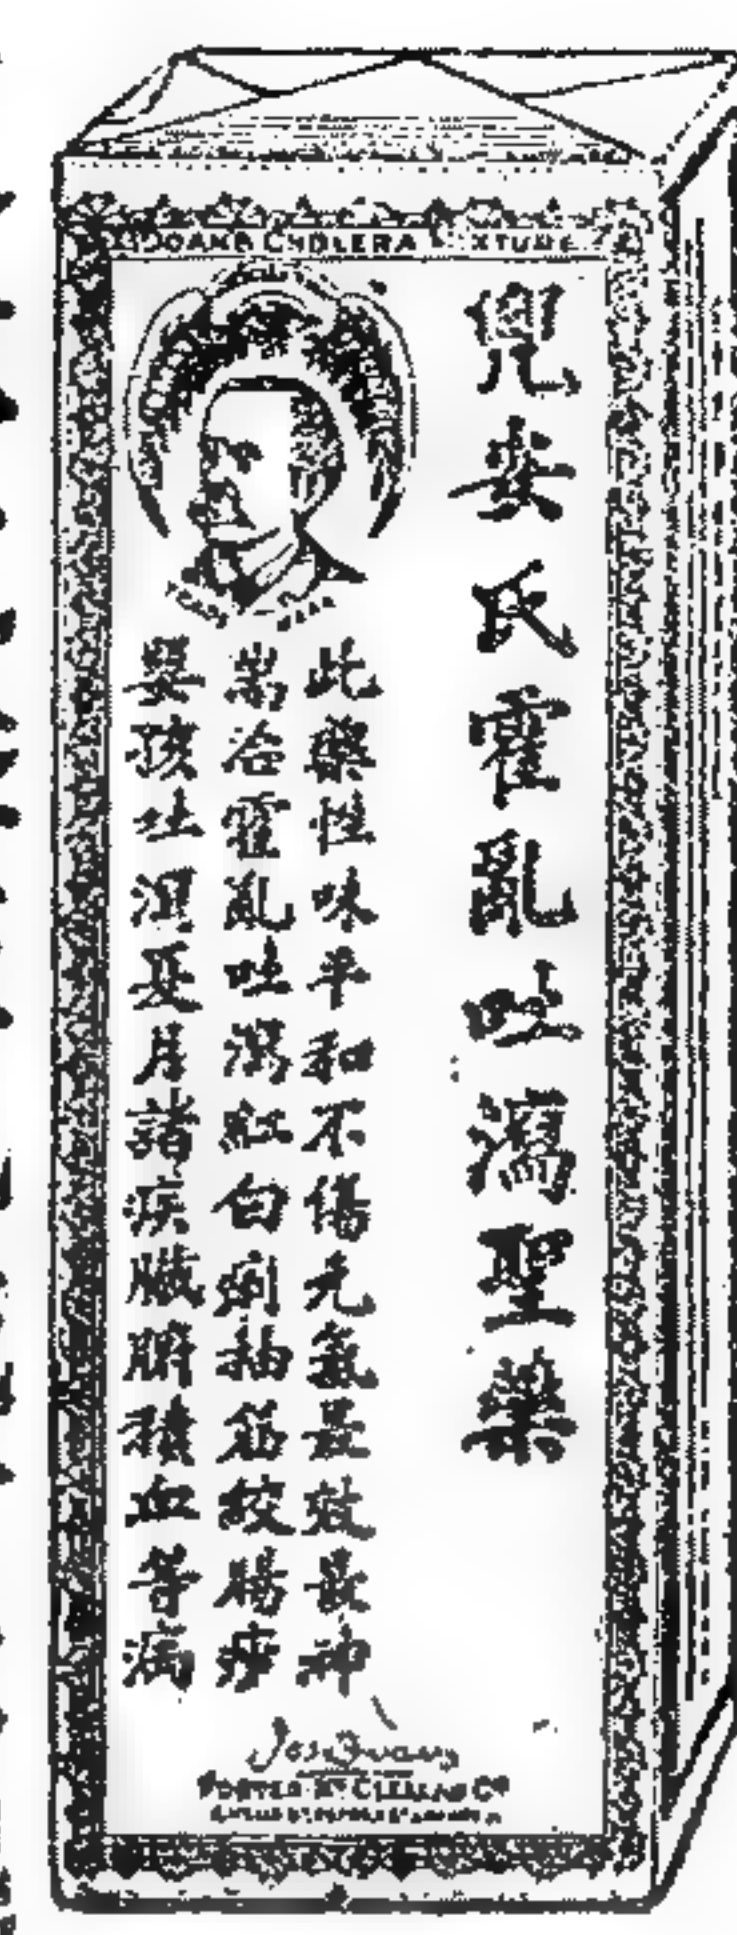 CHOLERA MIXTURE
兜安氏霍亂吐瀉聖藥
此藥性味平和不傷元氣最效最神
耑治霍亂吐瀉紅白痢抽筋絞腸痧
嬰孩吐泄夏月諸疾臟腑積血等病
TRADE MARK
FOSTER MCCLELLAN CO